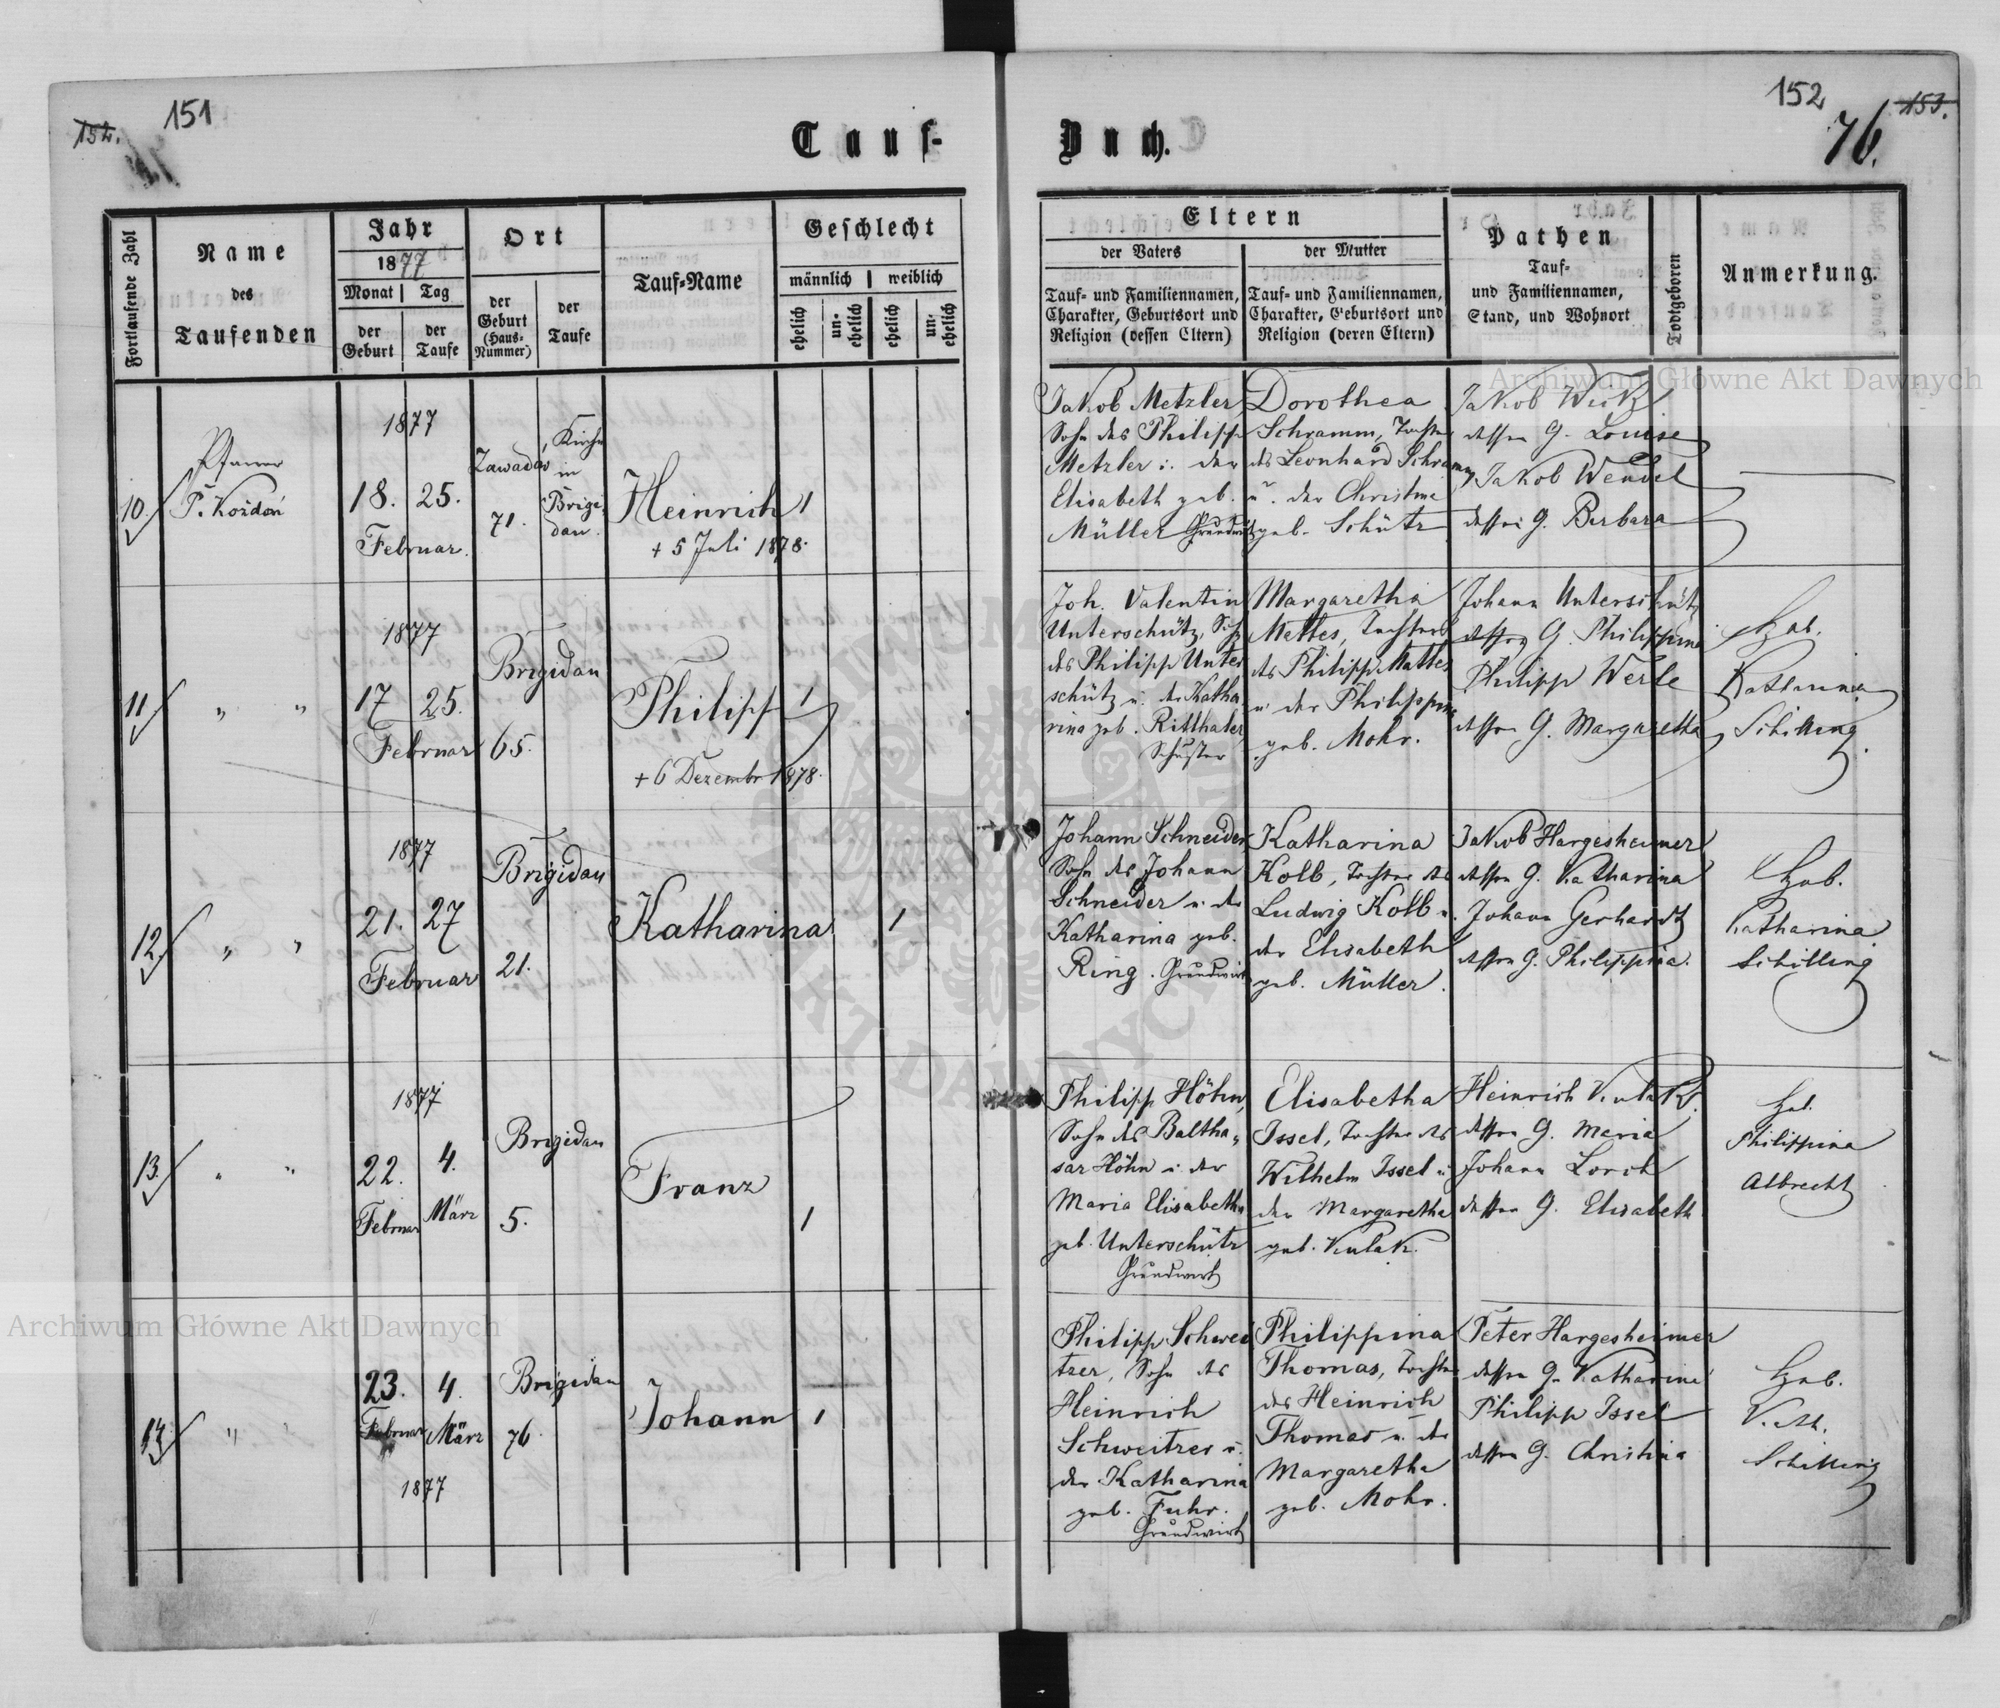 151
152.
152
153.
76.
Tauf-
Buch.
Fortlaufende Zahl
Name
des
Taufenden
Jahr
1877
Monat
Tag
der
Geburt
der
Taufe
Ort
der
Geburt
(Haus-
Nummer)
der
Taufe
Tauf-Name
Geschlecht
männlich
weiblich
ehelich
un-
ehelich
ehelich
un-
ehelich
Eltern
der Vaters
der Mutter
Tauf- und Familiennamen,
Charakter, Geburtsort und
Religion (dessen Eltern)
Tauf- und Familiennamen,
Charakter, Geburtsort und
Religion (deren Eltern)
Pathen
Tauf-
und Familiennamen,
Stand, und Wohnort
Todtgeboren
Anmerkung.
10.
Pfarrer
P. Koždoń
1877
18.
25.
Februar.
Zawadów
71.
Kirche
in
Brigi-
dau.
Heinrich
+ 5 Juli 1878.
1
Jakob Metzler
Sohn des Philipp
Metzler u. der
Elisabeth geb.
Müller Grundwirth
Dorothea
Schramm, Tochter
des Leonhard Schramm
u. der Christine
geb. Schütz
Jakob Weitz
dessen G. Louise
Jakob Wendel
dessen G. Barbara
11.
" "
1877
17
25.
Februar
Brigidau
65.
Philipp
+ 6 Dezember 1878.
1
Joh. Valentin
Unterschütz, Sohn
des Philipp Unter
schütz u. der Katha
rina geb. Ritthaler
Schuster
Margaretha
Mattes, Tochter
des Philipp Mattes
u. der Philippine
geb. Mohr.
Johann Unterschütz
dessen G. Philippine
Philipp Werle
dessen G. Margaretha
Heb.
Katharina
Schilling.
12.
" "
1877
21.
27
Februar
Brigidau
21.
Katharina
1
Johann Schneider
Sohn des Johann
Schneider u. der
Katharina geb.
Ring. Grundwirth
Katharina
Kolb, Tochter des
Ludwig Kolb u.
der Elisabeth
geb. Müller.
Jakob Hargesheimer
dessen G. Katharina
Johann Gerhardt
dessen G. Philippina.
Heb.
Katharina
Schilling
13.
" "
1877
22.
4.
Februar
März
Brigidau
5.
Franz
1
Philipp Höhn,
Sohn des Baltha-
sar Höhn u. der
Maria Elisabetha
geb. Unterschütz
Grundwirth
Elisabetha
Issel, Tochter des
Wilhelm Issel u.
der Margaretha
geb. Kulak.
Heinrich Kulak.
dessen G. Maria
Johann Lorch
dessen G. Elisabeth
Heb.
Philippina
Albrecht
14.
" "
23.
4.
Februar
März
1877
Brigidau
76.
Johann
1
Philipp Schwei
tzer, Sohn des
Heinrich
Schweitzer u.
der Katharina
geb. Fuhr.
Grundwirth
Philippina
Thomas, Tochter
des Heinrich
Thomas u. der
Margaretha
geb. Mohr.
Peter Hargesheimer
dessen G. Katharina
Philipp Issel
dessen G. Christina
Heb.
Kath.
Schilling
Archiwum Główne Akt Dawnych
Archiwum Główne Akt Dawnych